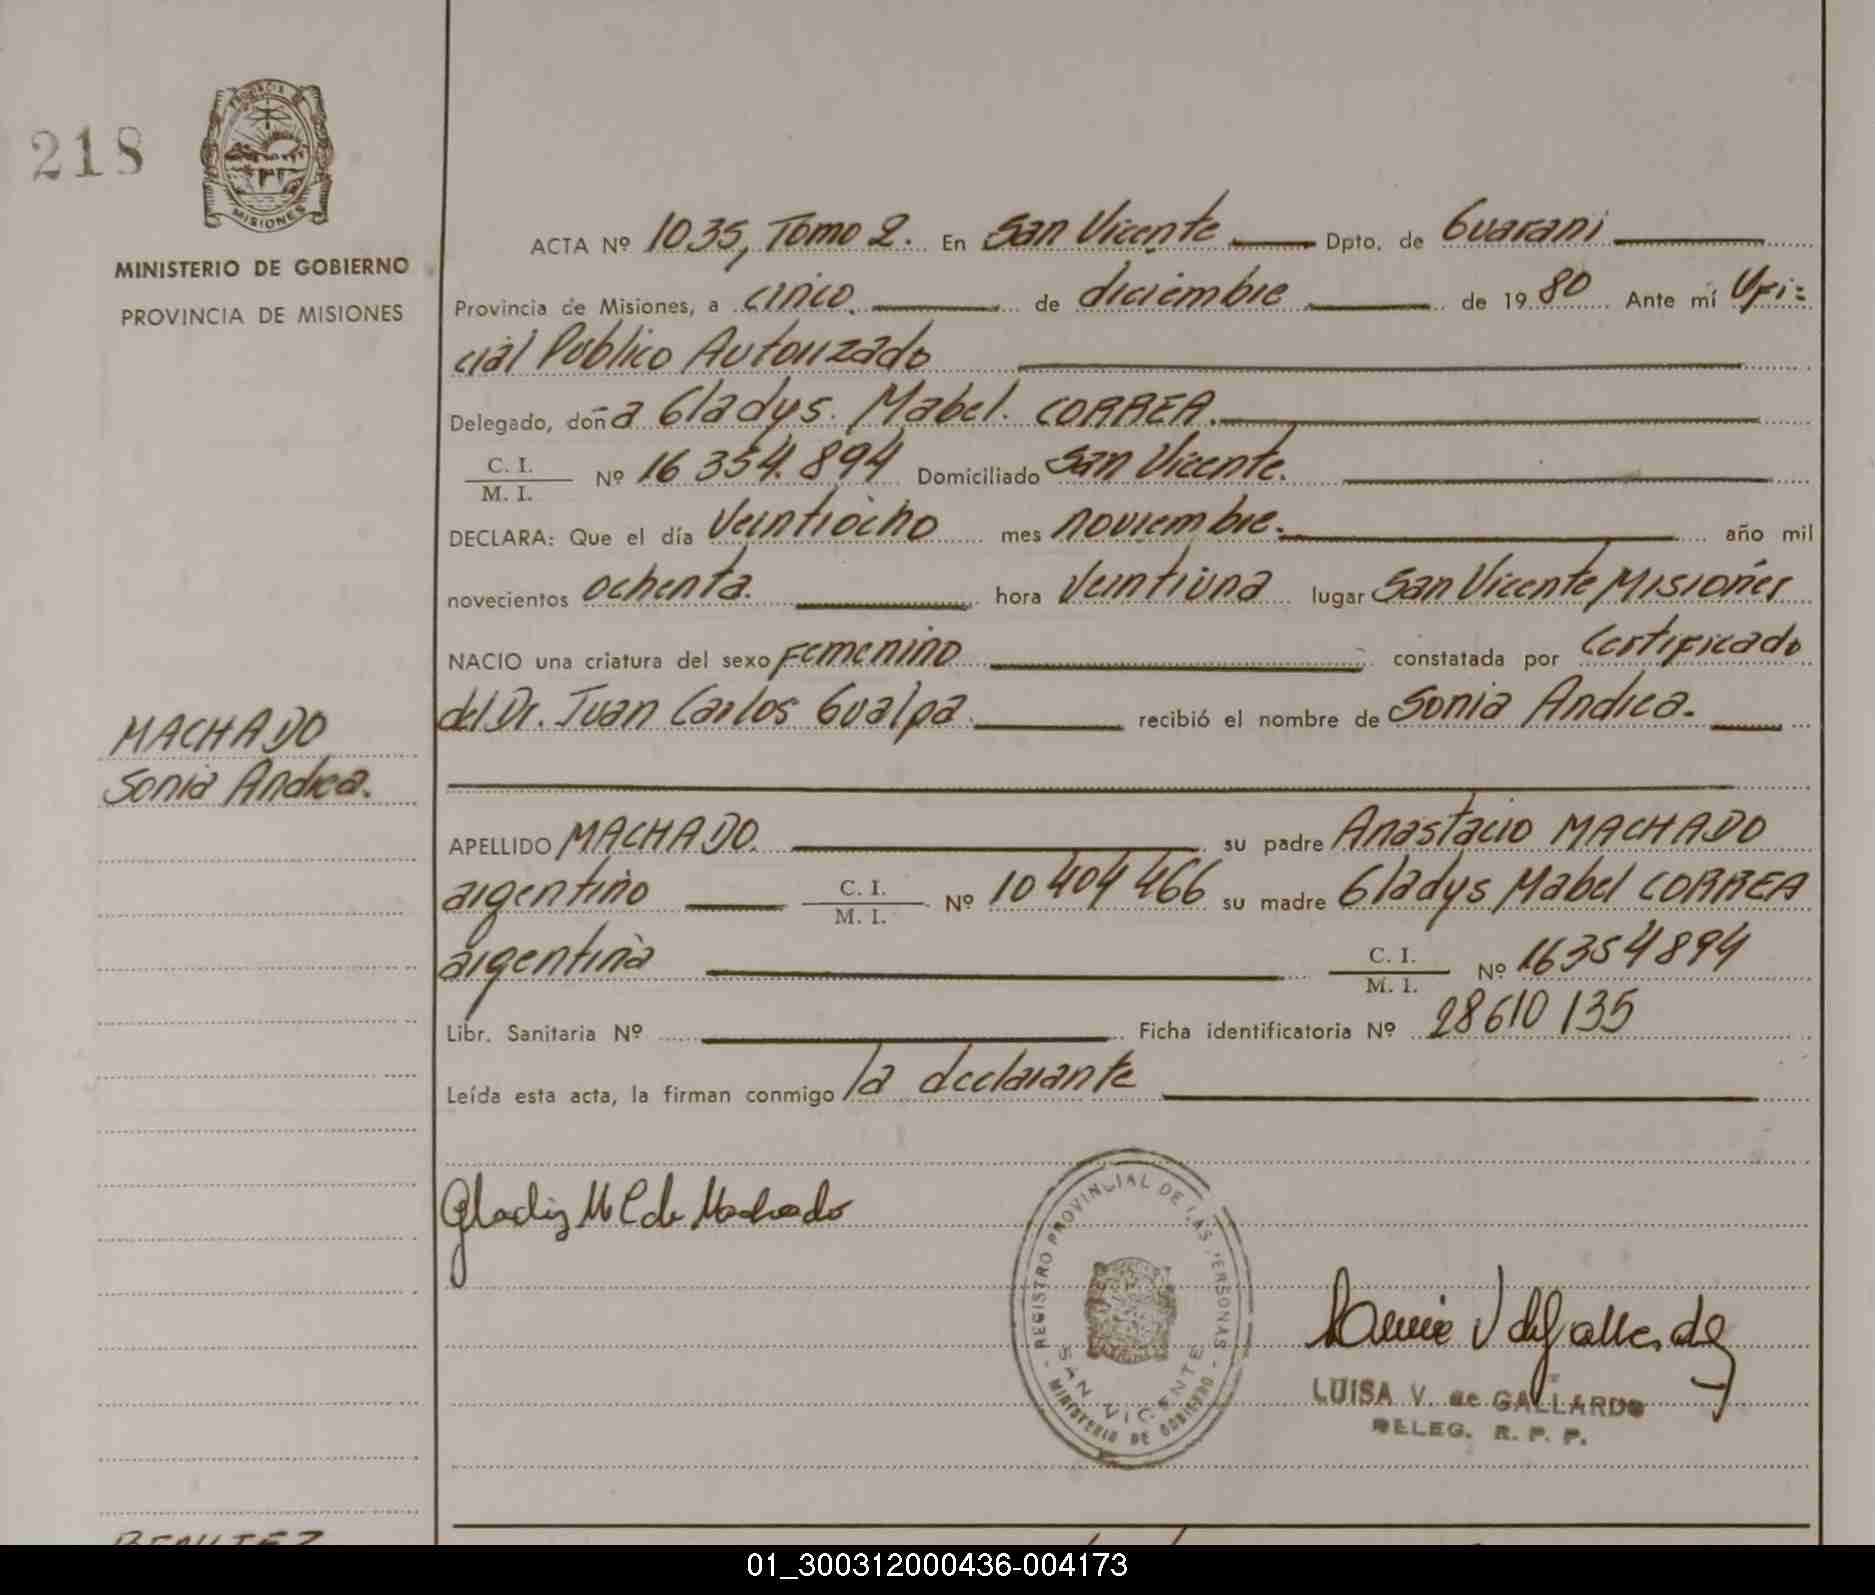 218
PROVINCIA DE
MISIONES
MINISTERIO DE GOBIERNO
PROVINCIA DE MISIONES
ACTA Nº 1035, Tomo 2. En San Vicente Dpto. de Guarani
Provincia de Misiones, a cinco. de diciembre de 19 80 Ante mí Ofi=
cial Publico Autorizado
Delegado, doña Gladys. Mabel. CORREA.
C. I.
M. I. Nº 16 354.894 Domiciliado San Vicente.
DECLARA: Que el día veintiocho mes noviembre. año mil
novecientos ochenta. hora veintiuna lugar San Vicente Misiones
NACIO una criatura del sexo Femenino constatada por Certificado
del Dr. Juan Carlos Gualpa. recibió el nombre de Sonia Andrea.
MACHADO
Sonia Andrea.
APELLIDO MACHADO. su padre Anastacio MACHADO
argentino C. I.
M. I. Nº 10 404 466 su madre Gladys Mabel CORREA
argentina C. I.
M. I. Nº 16354894
Libr. Sanitaria Nº Ficha identificatoria Nº 28610135
Leída esta acta, la firman conmigo la declarante
Gladis M C de Machado
REGISTRO PROVINCIAL DE LAS PERSONAS
SAN VICENTE
MINISTERIO DE GOBIERNO
Luisa V de Gallardo
LUISA V. de GALLARDO
DELEG. R. P. P.
BENITEZ
01_300312000436-004173